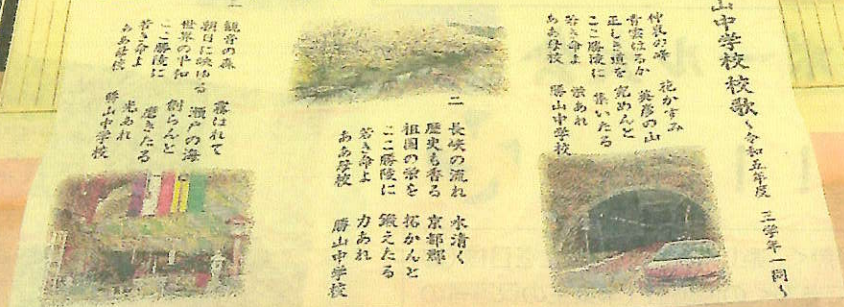 山中学校校歌 ~令和五年度 三学年一同~
仲哀の峰 花かすみ
青雲はるか 英彦の山
正しき道を 究めんと
ここ勝陵に 集いたる
若き命よ 栄あれ
ああ母校 勝山中学校
二
長峡の流れ 水清く
歴史も香る 京都郷
祖国の栄を 拓かんと
ここ勝陵に 鍛えたる
若き命よ 力あれ
ああ母校 勝山中学校
観音の森 霧はれて
朝日に映ゆる 瀬戸の海
世界の平和 創らんと
ここ勝陵に 磨きたる
若き命よ 光あれ
ああ母校 勝山中学校